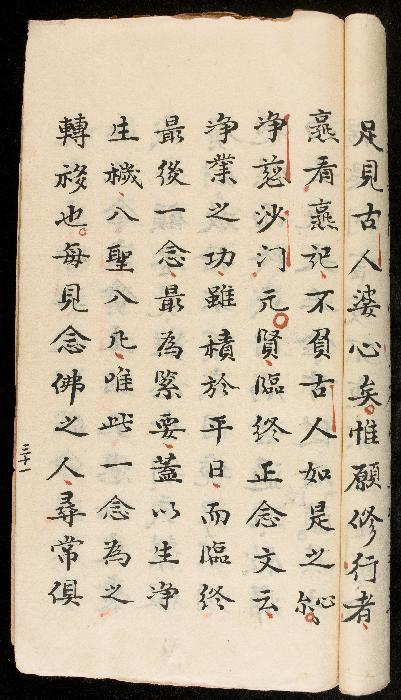 足見古人婆心矣惟願修行者
熹看熹記不負古人如是之心尓
淨慈沙门元賢臨終正念文云
淨業之功雖積於平日而臨終
最後一念最為緊要蓋以生淨
生穢入聖入凡唯此一念為之
轉移也每見念佛之人尋常俱
三十一